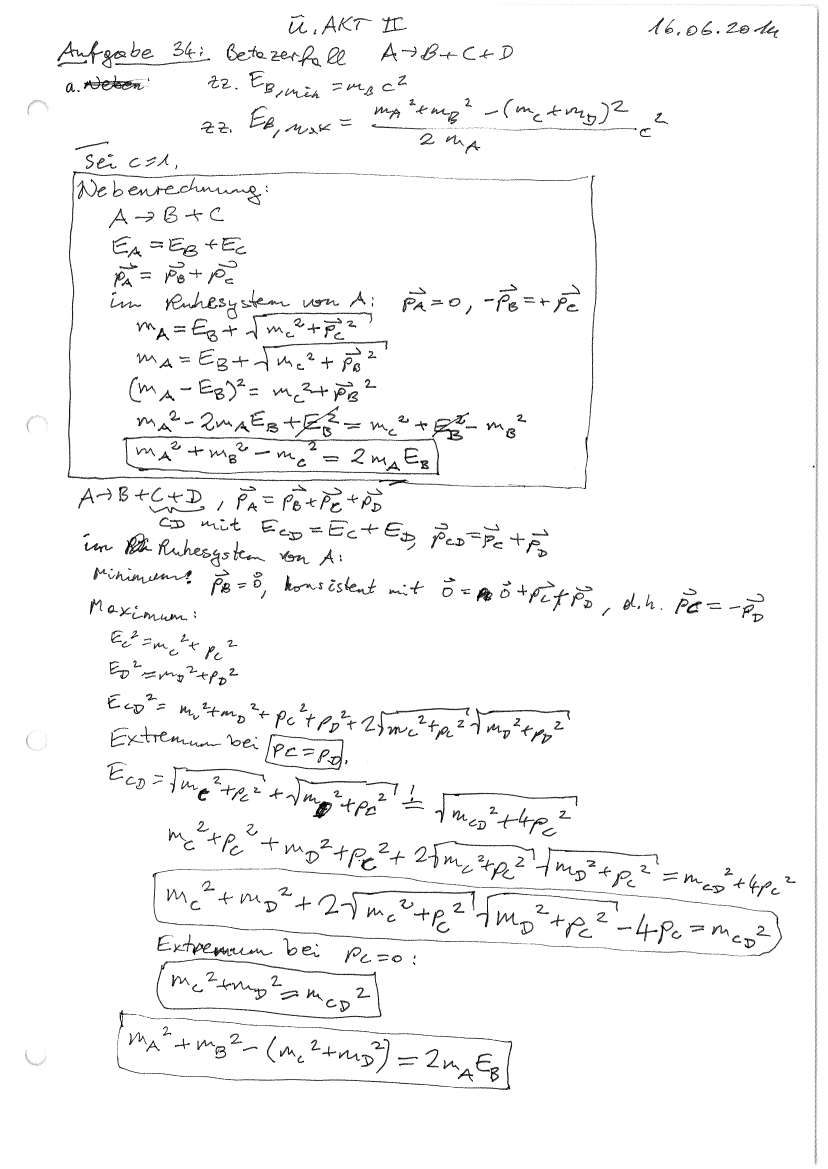 Ü. AKT II 16.06.2014
Aufgabe 34: Betazerfall A→B+C+D
a. Neben: zz. E_{B,min} = m_B c²
zz. E_{B,max} = (m_A² + m_B² - (m_C + m_D)²) / (2 m_A) c²
Sei c=1.
Nebenrechnung:
A → B + C
E_A = E_B + E_C
p⃗_A = p⃗_B + p⃗_C
im Ruhesystem von A: p⃗_A = 0, -p⃗_B = +p⃗_C
m_A = E_B + √(m_C² + p⃗_C²)
m_A = E_B + √(m_C² + p⃗_B²)
(m_A - E_B)² = m_C² + p⃗_B²
m_A² - 2m_A E_B + E_B² = m_C² + E_B² - m_B²
m_A² + m_B² - m_C² = 2 m_A E_B
A→B+C+D, p⃗_A = p⃗_B + p⃗_C + p⃗_D
CD mit E_CD = E_C + E_D, p⃗_CD = p⃗_C + p⃗_D
im Ruhesystem von A:
Minimum: p⃗_B = 0⃗, konsistent mit 0⃗ = 0⃗ + p⃗_C + p⃗_D, d.h. p⃗_C = -p⃗_D
Maximum:
E_C² = m_C² + p_C²
E_D² = m_D² + p_D²
E_CD² = m_C² + m_D² + p_C² + p_D² + 2√(m_C² + p_C²) √(m_D² + p_D²)
Extremum bei p_C = p_D.
E_CD = √(m_C² + p_C²) + √(m_D² + p_C²) =! √(m_CD² + 4p_C²)
m_C² + p_C² + m_D² + p_C² + 2√(m_C² + p_C²) √(m_D² + p_C²) = m_CD² + 4p_C²
m_C² + m_D² + 2√(m_C² + p_C²) √(m_D² + p_C²) - 4p_C = m_CD²
Extremum bei p_C = 0:
m_C² + m_D² = m_CD²
m_A² + m_B² - (m_C² + m_D²) = 2 m_A E_B